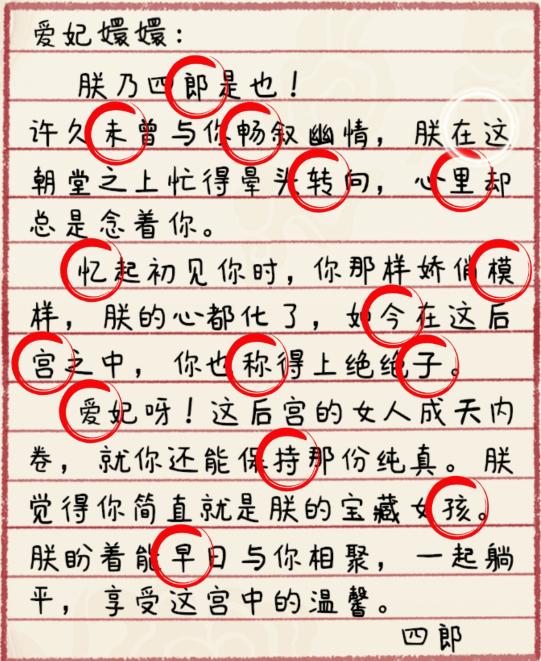 爱妃嬛嬛：
朕乃四郎是也！
许久未曾与你畅叙幽情，朕在这
朝堂之上忙得晕头转向，心里却
总是念着你。
忆起初见你时，你那样娇俏模
样，朕的心都化了，如今在这后
宫之中，你也称得上绝绝子。
爱妃呀！这后宫的女人成天内
卷，就你还能保持那份纯真。朕
觉得你简直就是朕的宝藏女孩。
朕盼着能早日与你相聚，一起躺
平，享受这宫中的温馨。
四郎